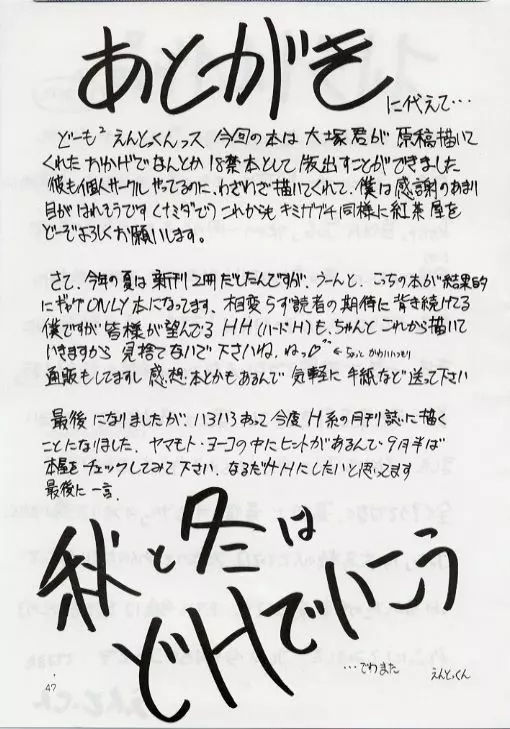 あとがき
に代えて…
どーも² えんとっくんっス 今回の本は 大塚君が 原稿描いて
くれた おかげで なんとか 本として 版出すことができました
彼も個人サークル やってるのに、わざわざ描いてくれて、僕は感謝のあまり
目が はれそうです(ナミダで) これからも キミガブチ 同様に 紅茶屋を
どーぞ よろしくお願いします。
さて、今年の夏は 新刊2冊だしたんですが、うーんと、こちの本が結果的
にギャグONLY本になってます、相変らず読者の期待に背き続けてる
僕ですが 皆様が望んでる HH(ハードH)も、ちゃんと これから描いて
いきますから 見捨てないで下さいね、ねっ♡ ←ちょっと かわいい
通販もしてますし 感・想・本とかもあるんで 気軽に 手紙など 送って下さい
最後になりましたが、いろいろあって今度H系の月刊誌に描く
ことになりました、ヤマモト・ヨーコの中にヒントがあるんで・9月半ば
本屋をチェックしてみて下さい、なるだけHにしたいと思ってます
最後に一言、
秋と冬は
どHでいこう
…でわまた
えんとっくん
47